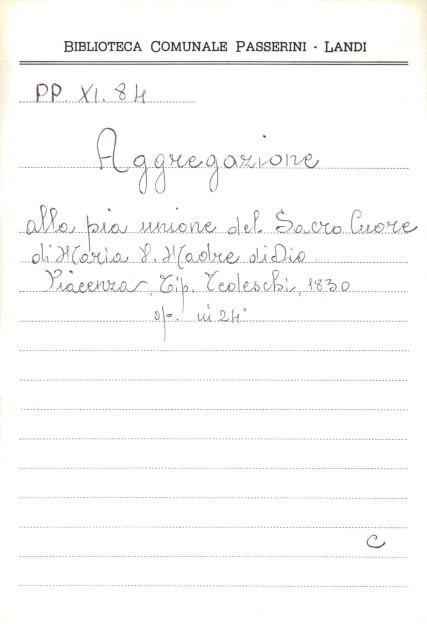 BIBLIOTECA COMUNALE PASSERINI - LANDI
PP. XI. 84
Aggregazione
alla pia unione del Sacro Cuore
di Maria V. Madre di Dio
Piacenza, Tip. Tedeschi, 1830
op. in 24°
C